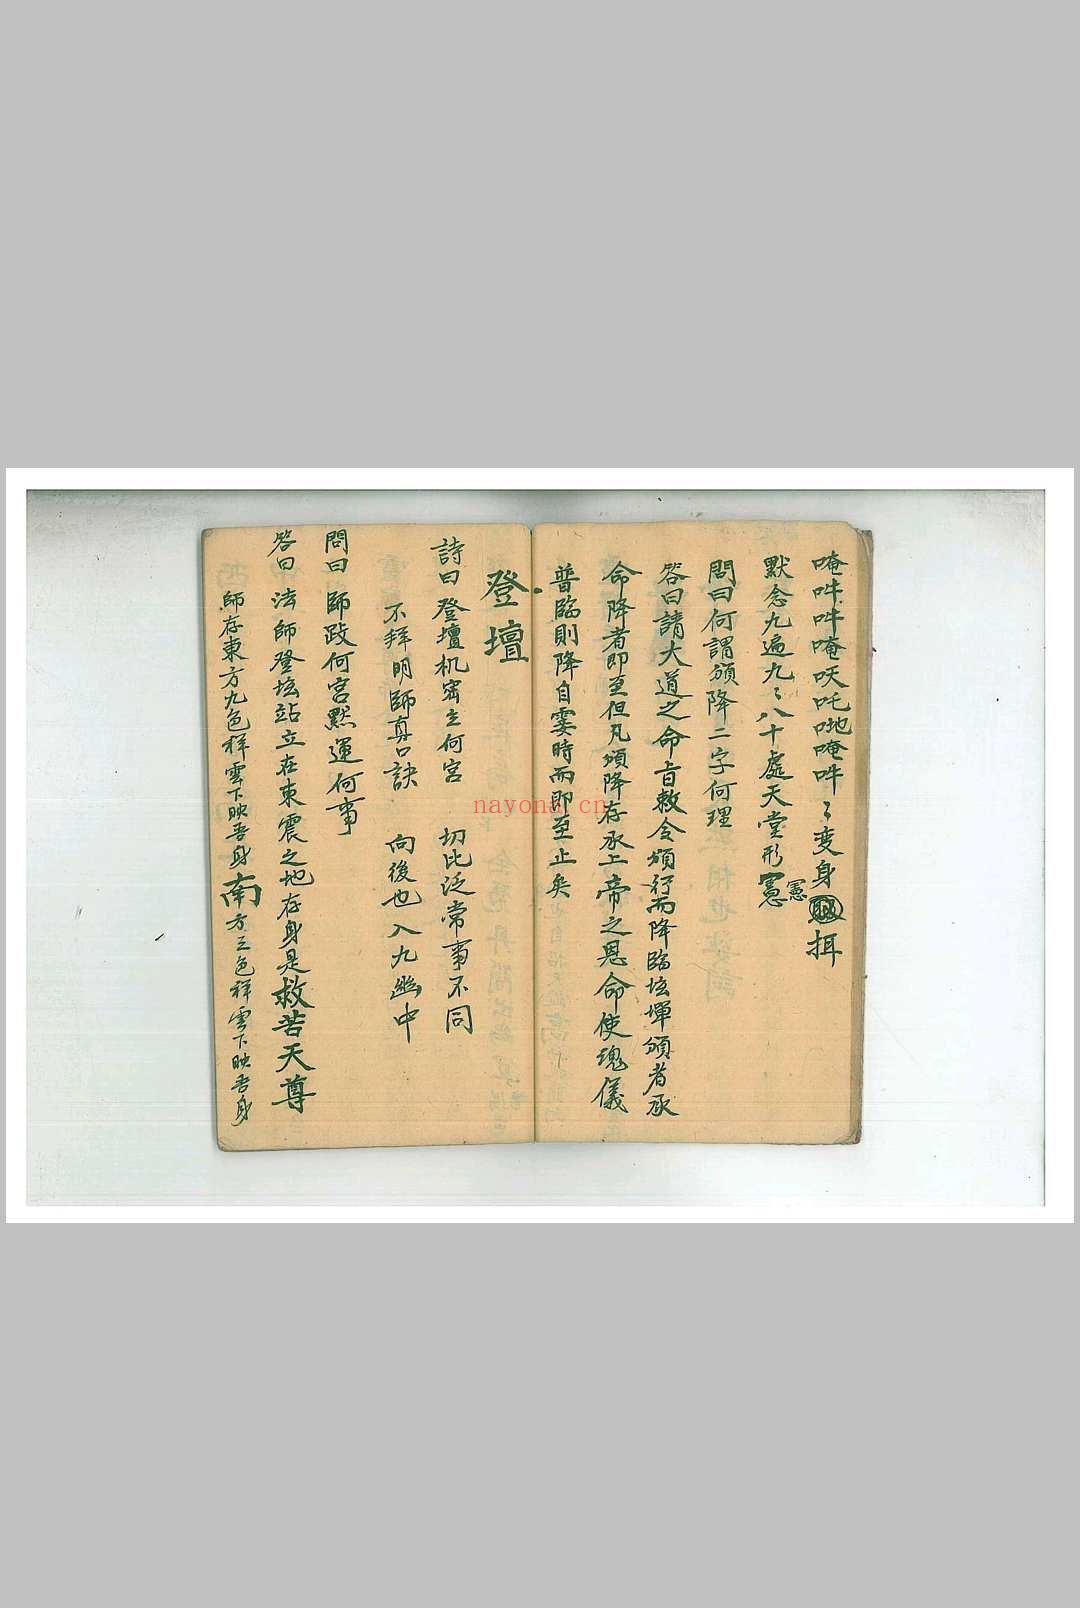 唵吽吽唵呋吒哋唵吽〻变身 揖
默念九遍九〻八十處天堂形憲
憲
問曰何謂頒降二字何理
答曰請大道之命旨敕令頒行而降臨坛墠頒者承
命降者即至但凡頒降存承上帝之恩命使魂儀
普臨則降自霎時而即至止矣
登壇
詩曰登壇机宻立何宮 切比泛常事不同
不拜明師真口訣 向後也入九幽中
問曰師跂何宮默運何事
答曰法師登坛站立在東震之地存身是救苦天尊
師存東方九色祥雲下映吾身南方三色祥雲下映吾身
nayona.cn